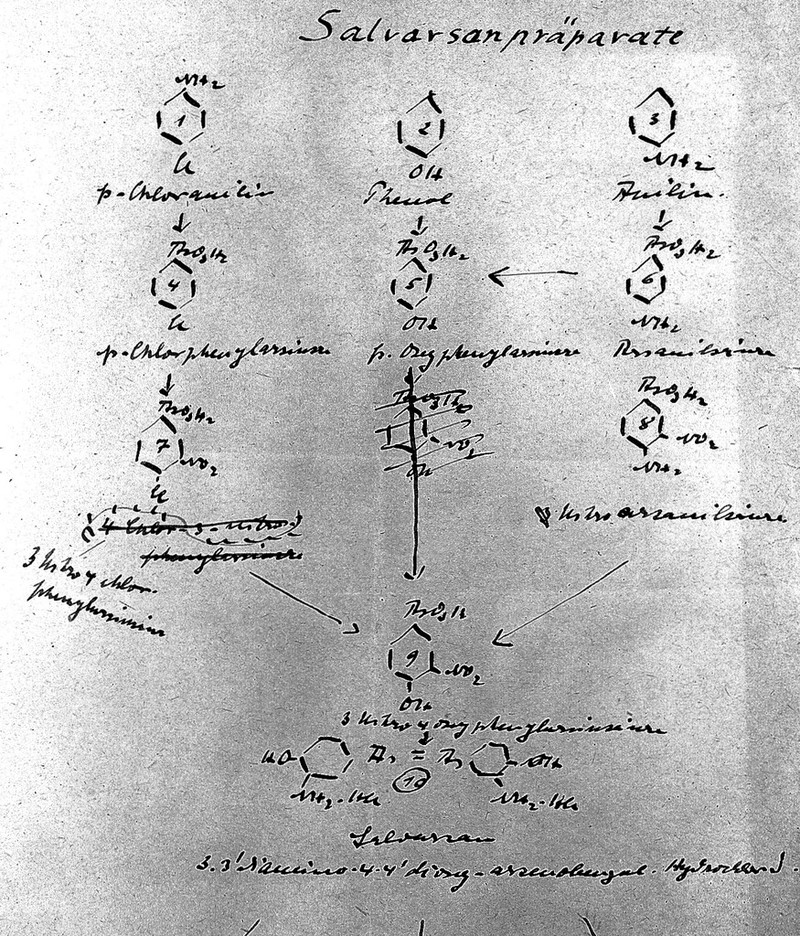 Salvarsanpräparate
NH2
1
Cl
p-Chloranilin
2
OH
Phenol
3
NH2
Anilin.
AsO3H2
4
Cl
p-Chlorphenylarsinsäure
AsO3H2
5
OH
p. Oxyphenylarsinsäure
AsO3H2
6
NH2
Arsanilsäure
AsO3H2
7
NO2
Cl
4 Chlor 3 nitro
phenylarsinsäure
3 Nitro 4 chlor-
phenylarsinsäure
AsO3H2
NO2
OH
AsO3H2
8
NO2
NH2
Nitroarsanilsäure
AsO3H2
9
NO2
OH
3 Nitro 4 oxyphenylarsinsäure
HO As = As OH
10
NH2·HCl NH2·HCl
Salvarsan
3.3' diamino-4.4' dioxy-arsenobenzol. Hydrochlorid.